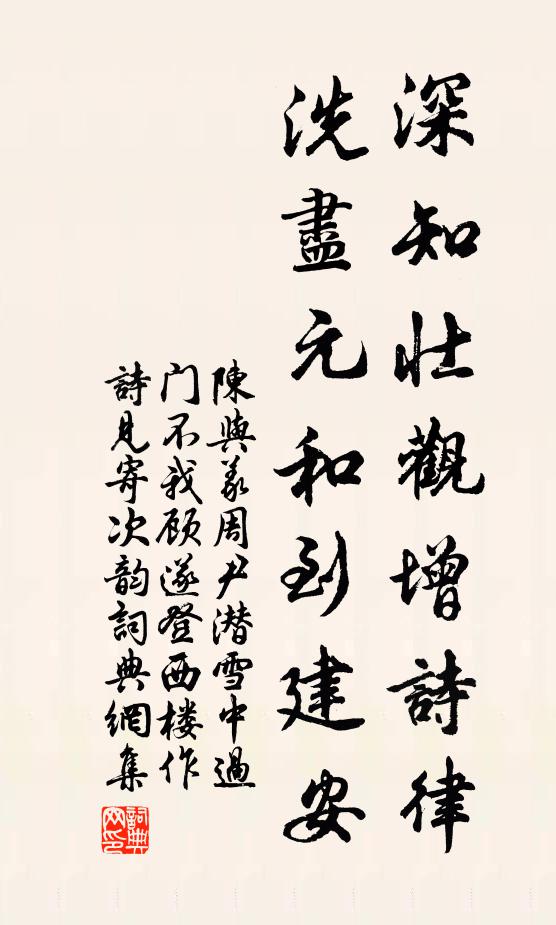 深知壯觀增詩律
洗盡元和到建安
陳與義周尹潛雪中過
门不我顾遂登西楼作
詩見寄次韵詞典網集
詞典網印